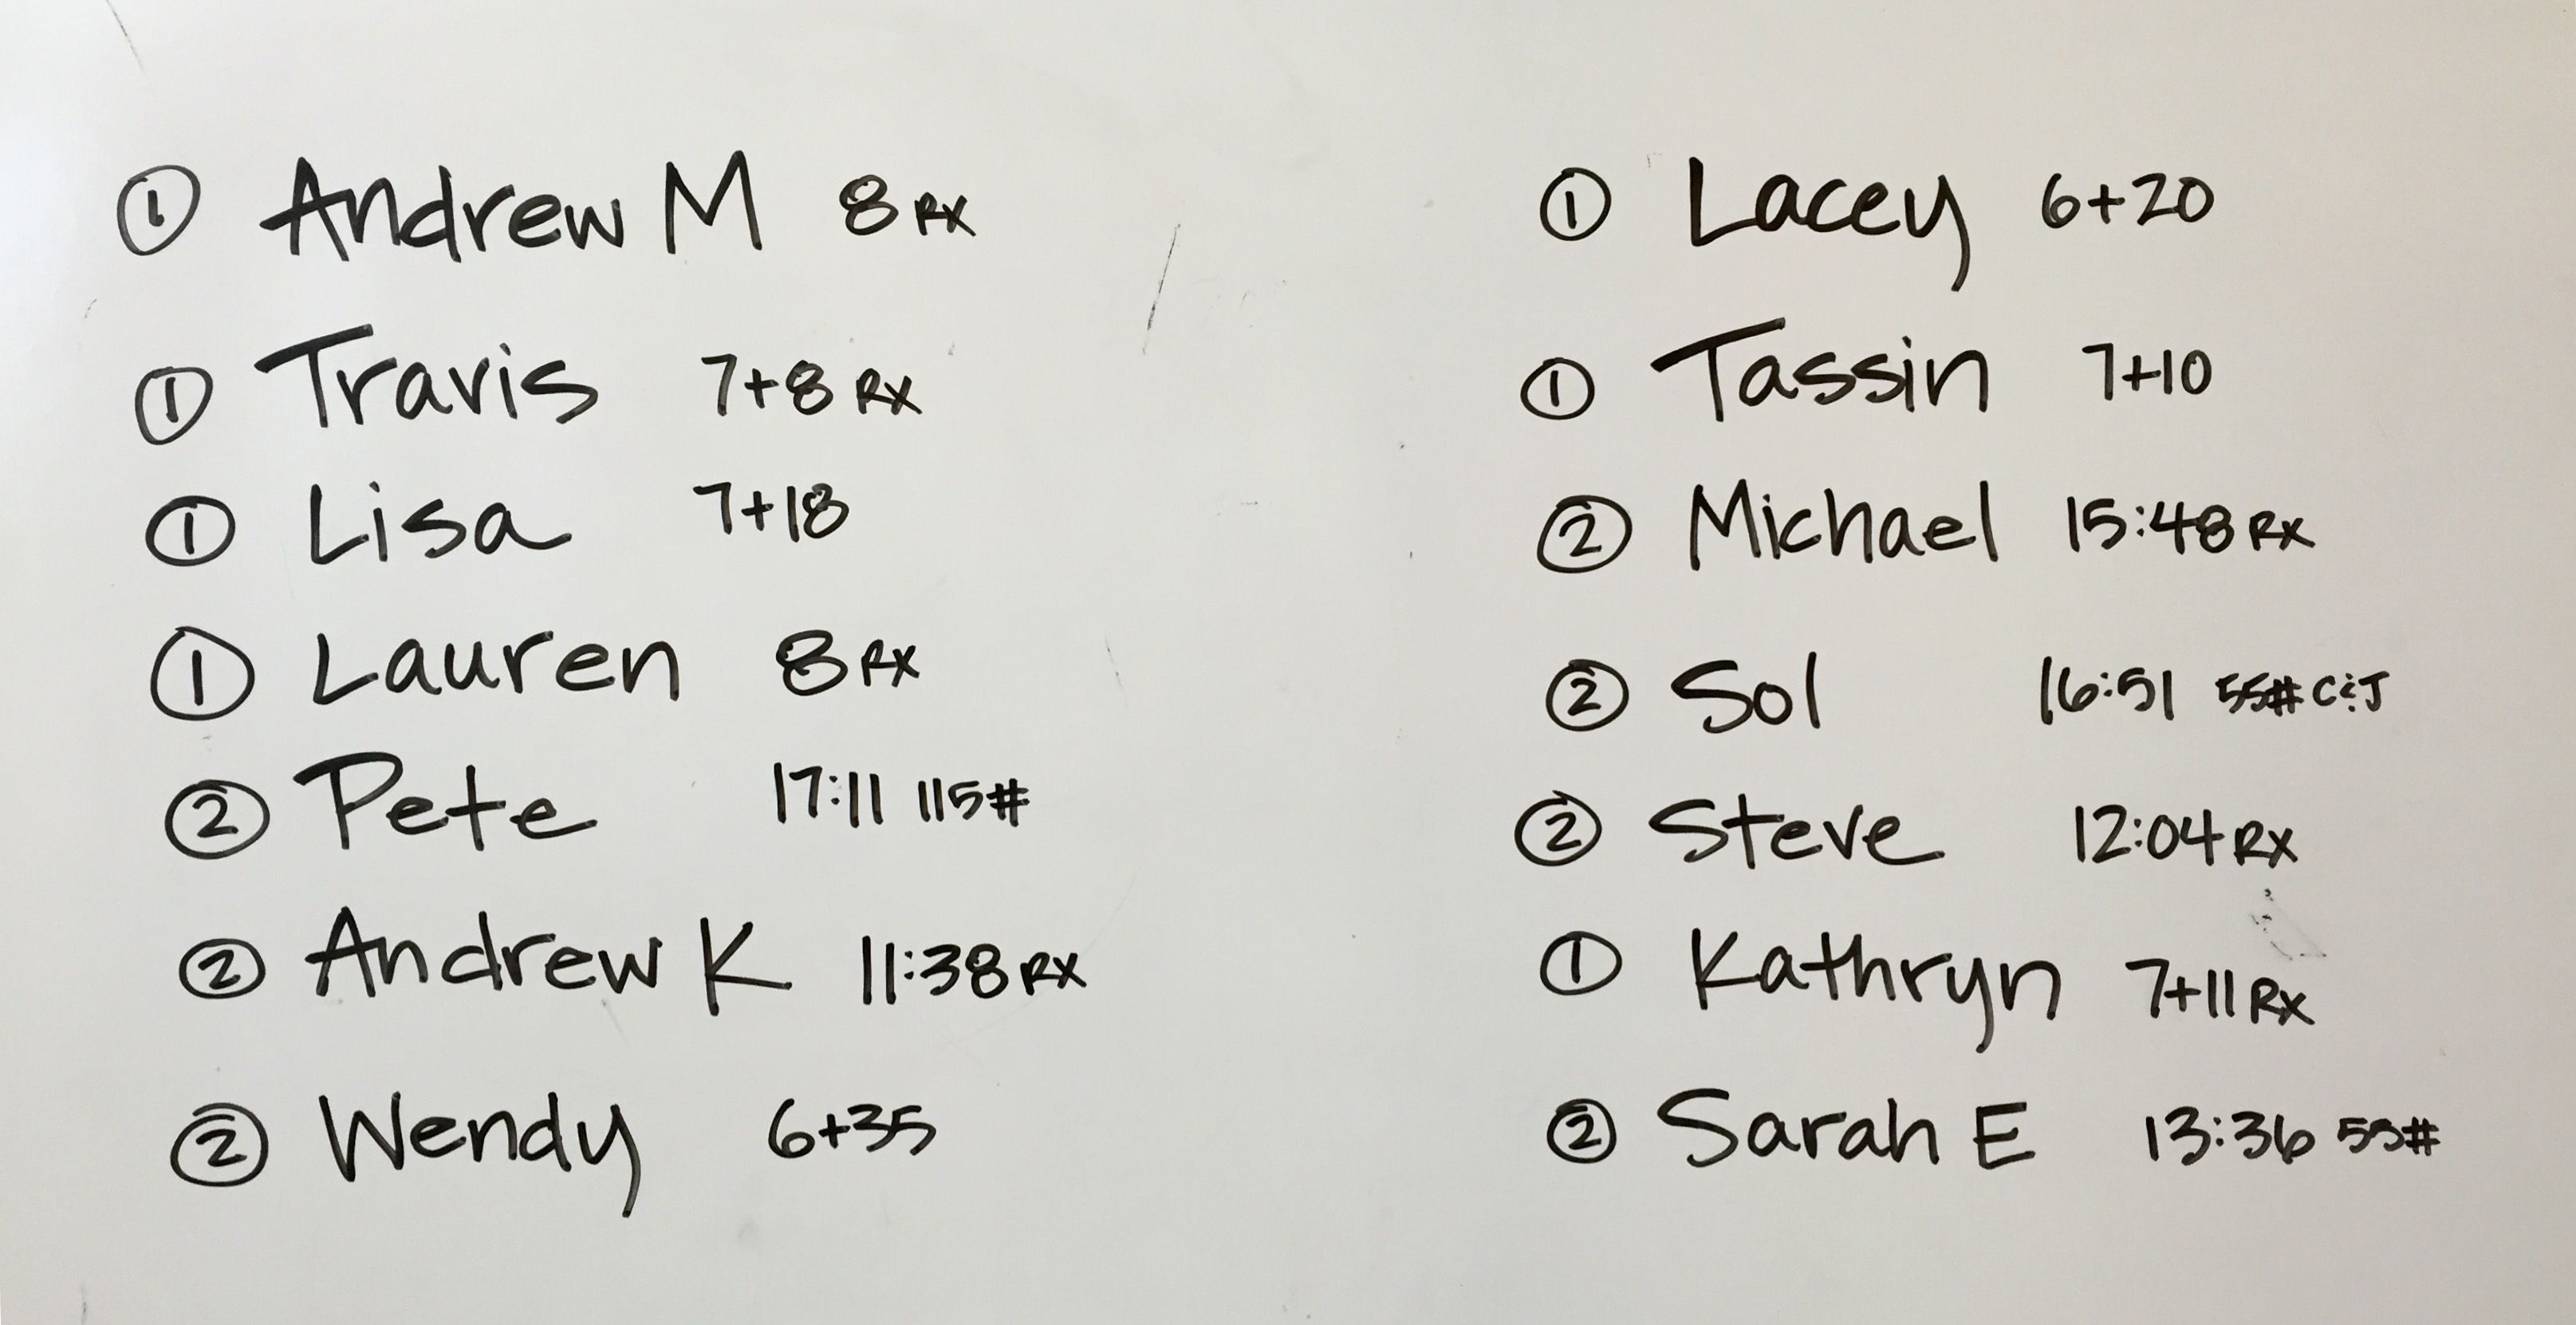 ① Andrew M 8 RX
① Travis 7+8 RX
① Lisa 7+18
① Lauren 8 RX
② Pete 17:11 115#
② Andrew K 11:38 RX
② Wendy 6+35
① Lacey 6+20
① Tassin 7+10
② Michael 15:48 RX
② Sol 16:51 55# C&J
② Steve 12:04 RX
① Kathryn 7+11 RX
② Sarah E 13:36 55#